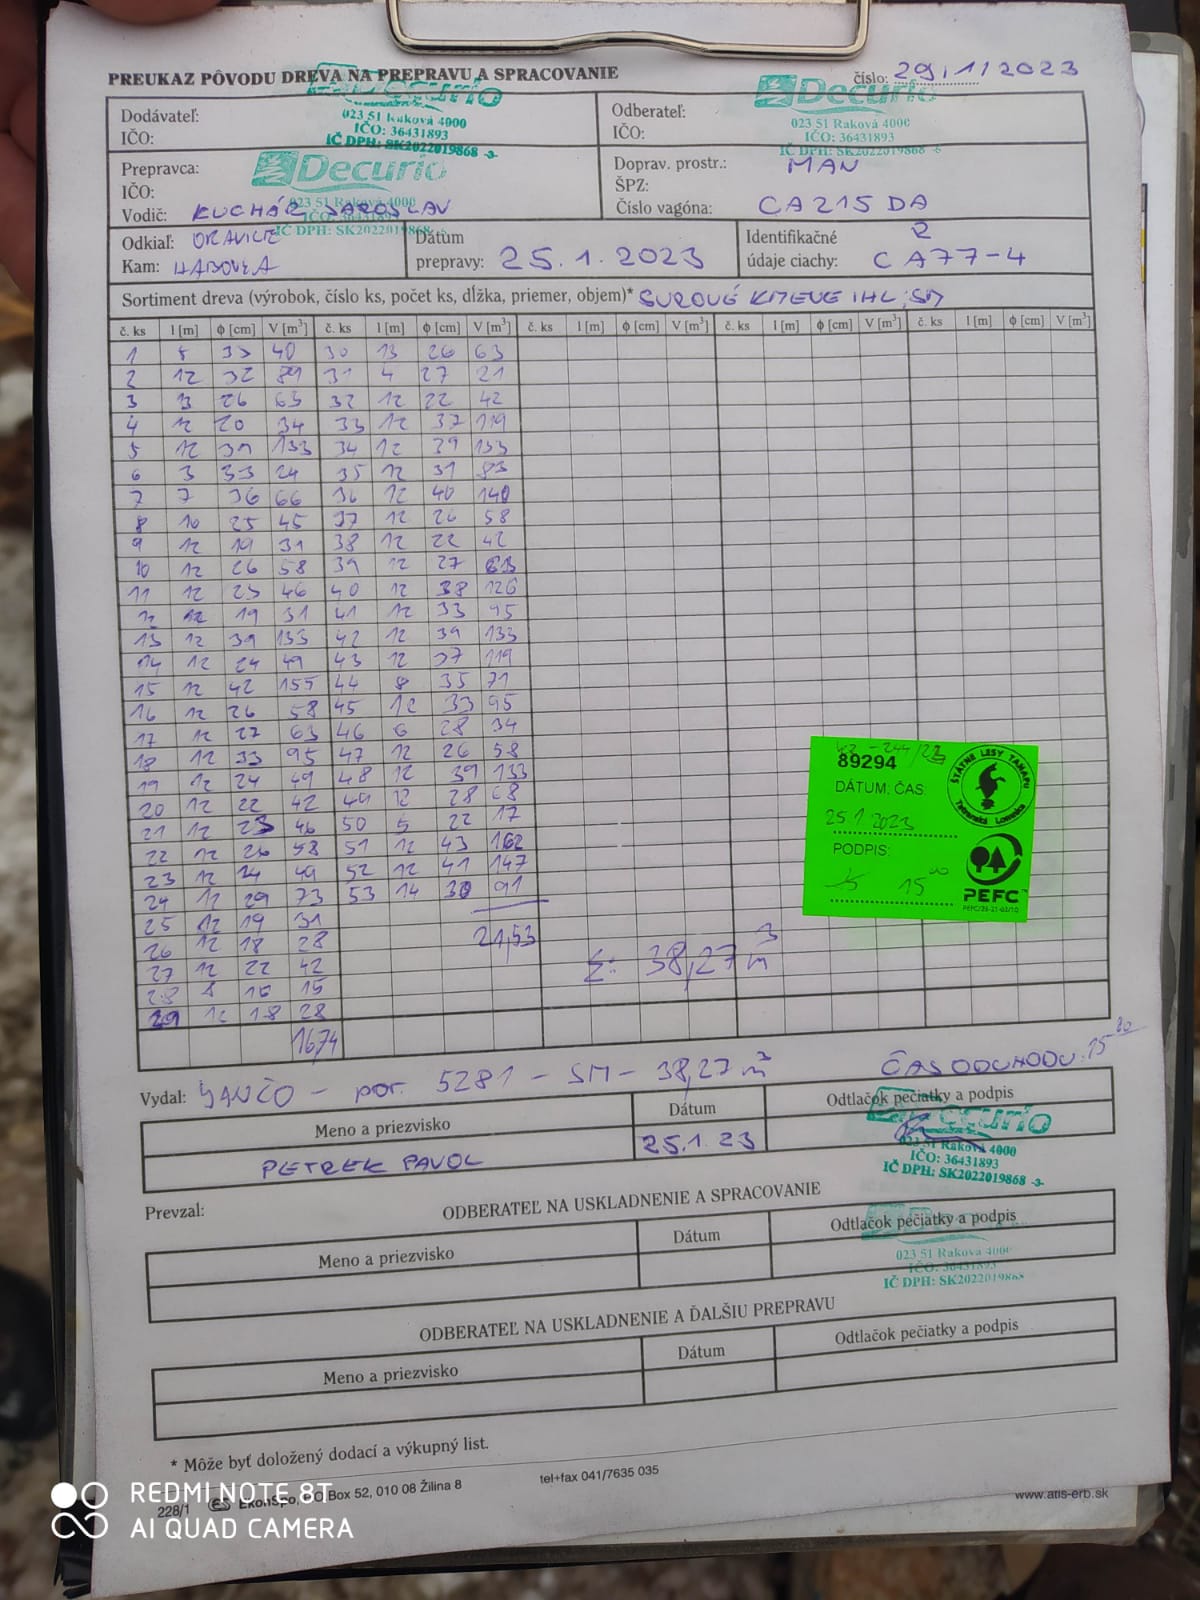 PREUKAZ PÔVODU DREVA NA PREPRAVU A SPRACOVANIE
číslo: 29/1/2023
Dodávateľ:
IČO:
Decurio
023 51 Raková 4000
IČO: 36431893
IČ DPH: SK2022019868 -3-
Odberateľ:
IČO:
Decurio
023 51 Raková 4000
IČO: 36431893
IČ DPH: SK2022019868
Prepravca:
IČO:
Vodič: KUCHÁR JAROSLAV
Decurio
023 51 Raková 4000
IČ DPH: SK2022019868
Doprav. prostr.: MAN
ŠPZ:
Číslo vagóna: CA215DA
Odkiaľ: ORAVICE
Kam: HABOVKA
Dátum
prepravy: 25.1.2023
Identifikačné
údaje ciachy: CA77-4
Sortiment dreva (výrobok, číslo ks, počet ks, dĺžka, priemer, objem)* SUROVÉ KMENE IHL; SM
č. ks l [m] ϕ [cm] V [m³] č. ks l [m] ϕ [cm] V [m³] č. ks l [m] ϕ [cm] V [m³] č. ks l [m] ϕ [cm] V [m³] č. ks l [m] ϕ [cm] V [m³]
1 40 30 13 26 63
2 12 32 89 31 4 27 21
3 13 26 63 32 12 22 42
4 12 20 34 33 12 37 119
5 12 39 133 34 12 39 133
6 3 33 24 35 12 31 83
7 7 36 66 36 12 40 140
8 10 25 45 37 12 26 58
9 12 19 31 38 12 22 42
10 12 26 58 39 12 27 63
11 12 23 46 40 12 38 126
12 12 19 31 41 12 33 95
13 12 39 133 42 12 39 133
14 12 24 49 43 12 37 119
15 12 42 155 44 8 35 71
16 12 26 58 45 12 33 95
17 12 27 63 46 6 28 34
18 12 33 95 47 12 26 58
19 12 24 49 48 12 39 133
20 12 22 42 49 12 28 68
21 12 23 46 50 5 22 17
22 12 26 58 51 12 43 162
23 12 24 49 52 12 41 147
24 12 29 73 53 14 30 91
25 12 19 31
26 12 18 28
27 12 22 42
28 8 16 15
29 12 18 28
21,53
Σ: 38,27 m³
1674
89294
DÁTUM, ČAS:
25 1 2023
PODPIS:
15⁰⁰
ŠTÁTNE LESY TANAPU
Tatranská Lomnica
PEFC
Vydal: JANČO - por. 5281 - SM - 38,27 m³
ČAS ODCHODU:
Meno a priezvisko
Dátum
Odtlačok pečiatky a podpis
PETREK PAVOL
25.1.23
Decurio
023 51 Raková 4000
IČO: 36431893
IČ DPH: SK2022019868 -3-
Prevzal:
ODBERATEĽ NA USKLADNENIE A SPRACOVANIE
Meno a priezvisko
Dátum
Odtlačok pečiatky a podpis
023 51 Raková 4000
IČO: 36431893
IČ DPH: SK2022019868
ODBERATEĽ NA USKLADNENIE A ĎALŠIU PREPRAVU
Meno a priezvisko
Dátum
Odtlačok pečiatky a podpis
* Môže byť doložený dodací a výkupný list.
228/1 EkonSpo, P.O.Box 52, 010 08 Žilina 8
tel+fax 041/7635 035
www.atis-erb.sk
REDMI NOTE 8T
AI QUAD CAMERA